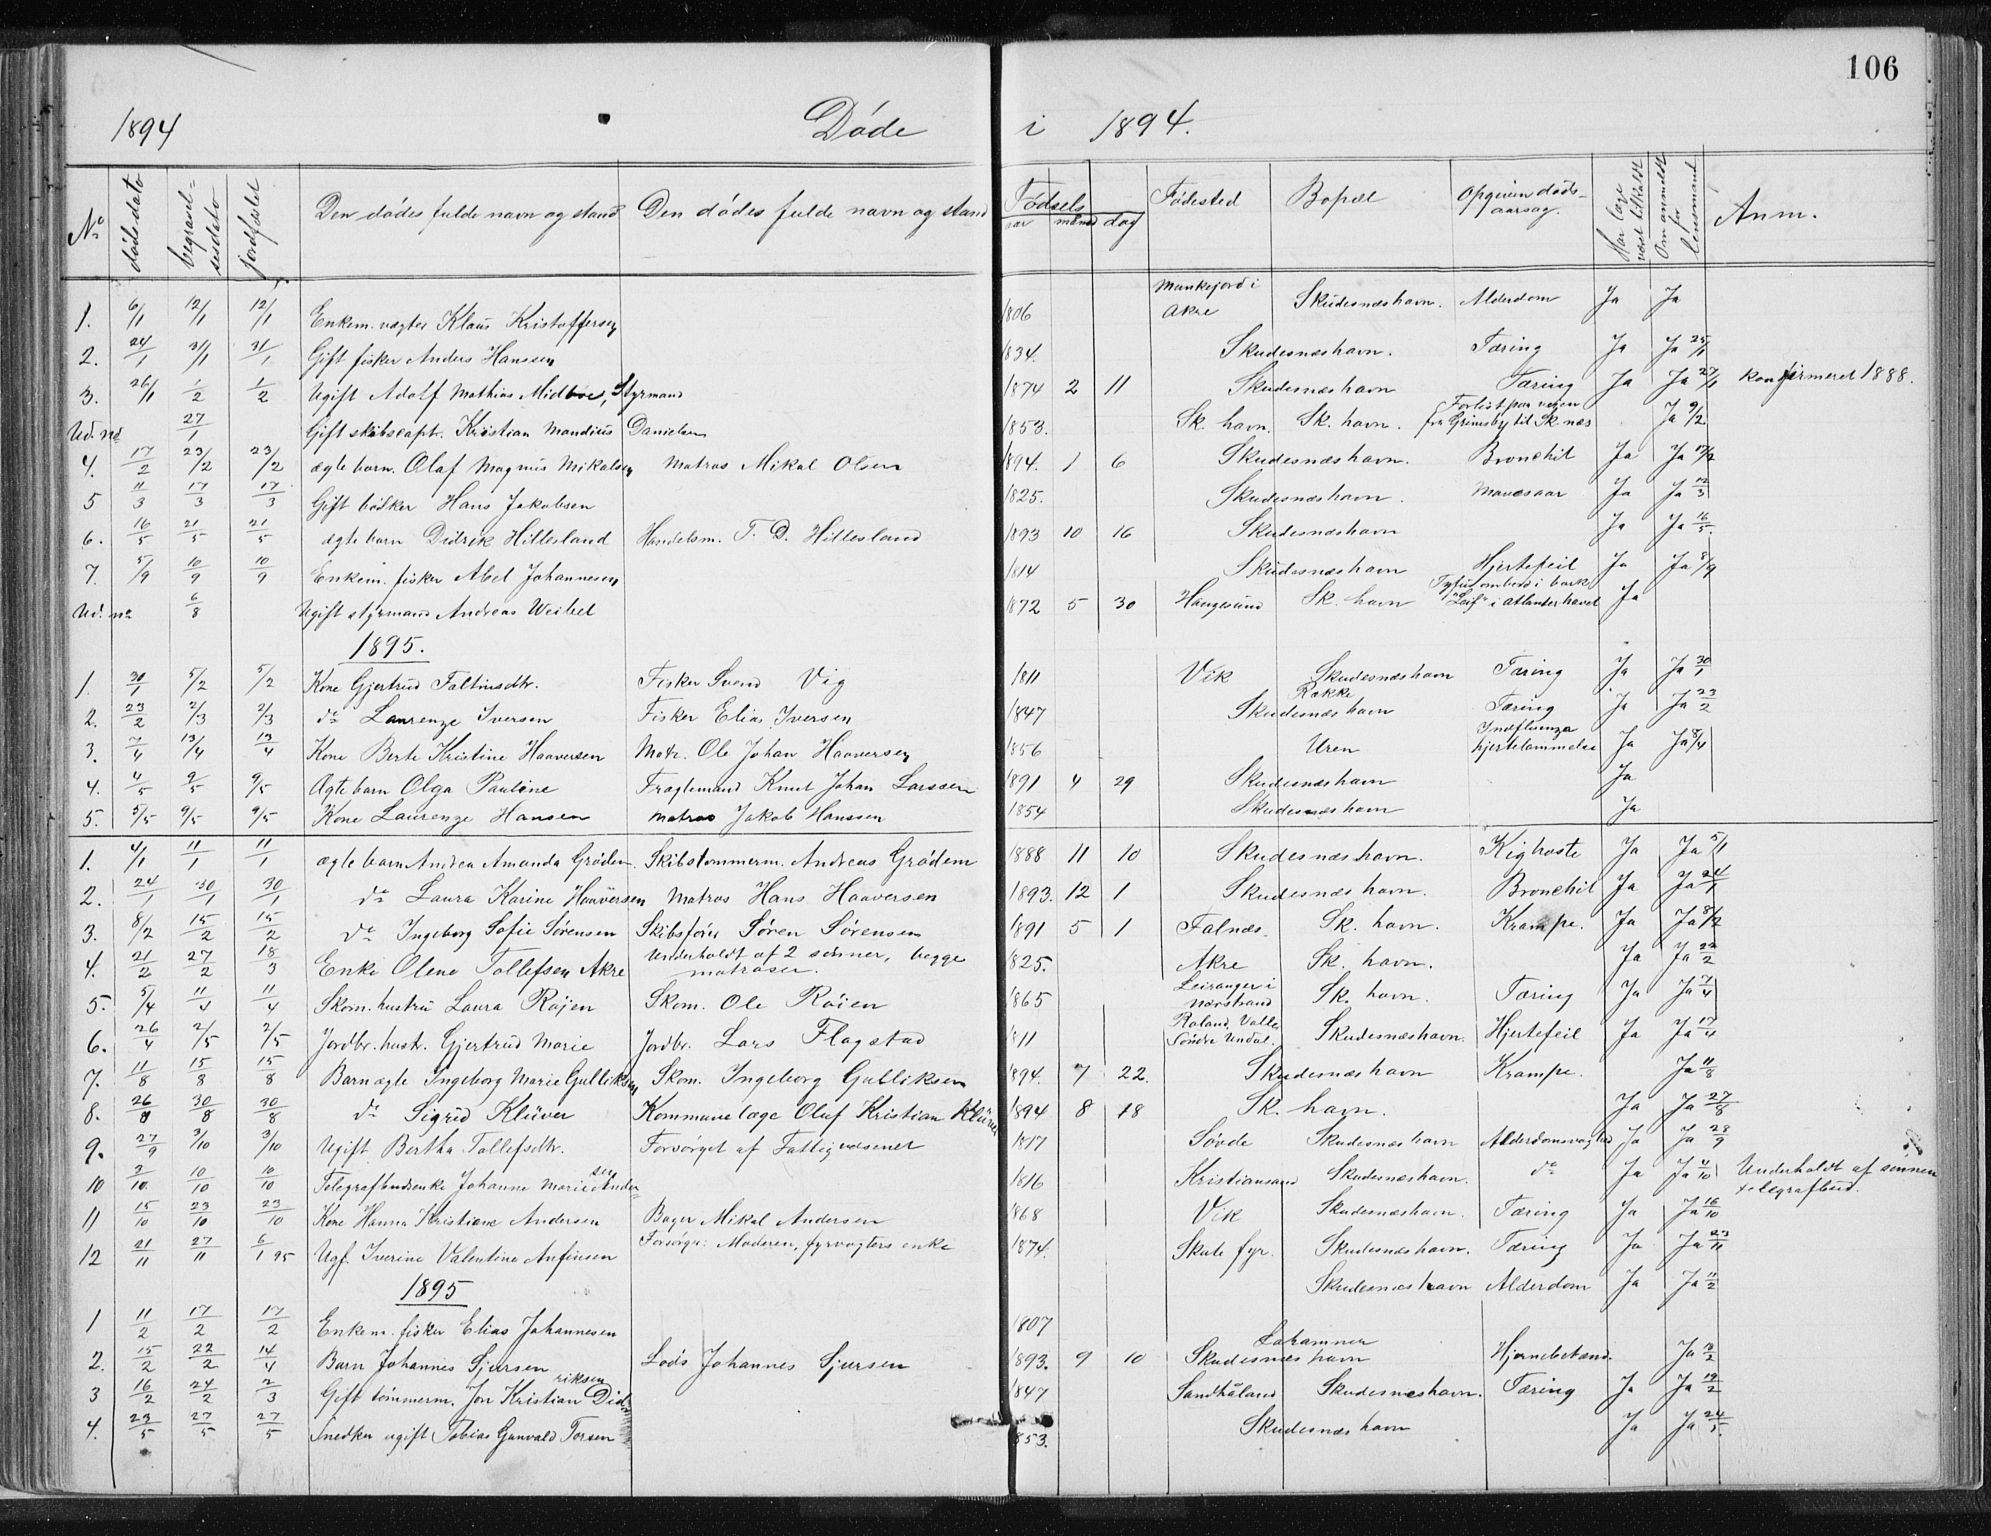 106
1894 Døde i 1894.
No dødsdato begravelsesdato jordfæstet Den dødes fulde navn og stand Den dødes fulde navn og stand Fødsels aar måned dag Fødested Bopæl Opgiven dødsaarsag. Har læge været tilkaldt Om anmeldt for lensmand Anm.
1. 6/1 12/1 12/1 Enkem. vægter Klaus Kristoffersen 1806 Munkejord i Akre Skudesnæshavn. Alderdom Ja Ja
2. 24/1 31/1 31/1 Gift fisker Anders Hanssen 1834. Skudesnæshavn. Tæring Ja Ja 25/1
3. 26/1 1/2 1/2 Ugift Adolf Mathias Midbøe, Styrmand 1874 2 11 Skudesnæshavn Tæring Ja Ja 27/1 Konfirmeret 1888.
Ud. no 27/1 Gift skibscapt. Kristian Mandius Danielsen 1853. Sk. havn. Sk. havn. Forlist paa veien fra Grimsby til Sk.næs Ja 9/2
4. 17/2 23/2 23/2 ægte barn. Olaf Magnus Mikalsen Matros Mikal Olsen 1894. 1 6 Skudesnæshavn. Bronchit Ja Ja 17/2
5 11/3 17/3 17/3 Gift bødker Hans Jakobsen 1825. Skudesnæshavn. Mavesaar Ja Ja 12/3
6. 16/5 21/5 21/5 ægte barn Didrik Hillesland Handelsm. T. D. Hillesland 1893 10 16 Skudesnæshavn Ja Ja 16/5.
7. 5/9 10/9 10/9 Enkem. fisker Abel Johannesen 1814 Skudesnæshavn Hjertefeil Ja Ja 8/9
Ud. no 6/8 Ugift styrmand Andreas Weibel 1872 5 30 Haugesund Sk. havn Tyfus ombord i bark "Leif" i Atlanterhavet Ja
1895.
1. 30/1 5/2 5/2 Kone Gjertrud Faltinsdtr. Fisker Svend Vig 1811 Vik Skudesnæshavn Tæring Ja Ja 30/1
2. 23/2 2/3 2/3 do Laurenze Iversen Fisker Elias Iversen 1847 Række Skudesnæshavn Tæring Ja Ja 23/2
3. 7/4 13/4 13/4 Kone Berte Kristine Haaversen Matr. Ole Johan Haaversen 1856 Uren Indfluenza hjertelammelse Ja Ja 8/4
4. 4/5 9/5 9/5 Ægte barn Olga Pauline Fragtemand Knut Johan Larssen 1891 4 29 Skudesnæshavn Ja
5. 5/5 9/5 9/5 Kone Laurenze Hansen Matros Jakob Hanssen 1854 Skudesnæshavn Ja
1. 4/1 11/1 11/1 ægte barn Andrea Amanda Grødem Skibstømmerm. Andreas Grødem 1888 11 10 Skudesnæshavn. Kighoste Ja Ja 5/1
2. 24/1 30/1 30/1 do Laura Karine Haaversen Matros Hans Haaversen 1893. 12 1 Skudesnæshavn. Bronchit Ja Ja 24/1
3. 8/2 15/2 15/2 do Ingeborg Sofie Sørensen Skibsfører Søren Sørensen 1891 5 1 Falnæs. Sk. havn. Krampe. Ja Ja 8/2
4. 21/2 27/2 18/3 Enke Olene Tollefsen Akre Underholdt af 2 sønner, begge matroser. 1825. Akre Sk. havn. Ja Ja 22/2
5. 5/4 11/4 11/4 Skom. hustru Laura Røien Skom. Ole Røien 1865 Leiranger i Nærstrand Sk. havn. Tæring Ja Ja 7/4
6. 26/4 2/5 2/5 Jordbr. hustr. Gjertrud Marie Jordbr. Lars Flagstad 1811 Roland, Valle Søndre Undal. Skudesnæshavn. Hjertefeil Ja Ja 17/4
7. 11/8 15/8 15/8 Barn ægte Ingeborg Marie Gulliksen Skom. Ingeborg Gulliksen 1894. 7 22. Skudesnæshavn Krampe. Ja 11/8
8. 26/8 30/8 30/8 do Sigrid Klüver Kommunelæge Oluf Kristian Klüver 1894 8 18 Sk. havn. Ja Ja 27/8
9. 27/9 3/10 3/10 Ugift Bertha Tollefsdtr. Forsørget af Fattigvæsenet 1817 Søvde Skudesnæshavn Alderdomsvaghed Ja Ja 28/9
10 3/10 10/10 10/10 Telegrafbudsenke Johanne Marie Andersen 1816 Kristiansand Skudesnæshavn. do Ja Ja 4/10 Underholdt af sønnen telegrafbud.
11 15/10 23/10 23/10 Kone Hanna Kristiane Andersen Bager Mikal Andersen 1868 Vik Skudesnæshavn. Tæring Ja Ja 16/10
12 21/11 27/11 6/1 95 Ugf. Iverine Valentine Anfinsen Forsørger: Moderen, fyrvogters enke 1874. Skute fyr. Skudesnæshavn. Tæring Ja Ja 23/11
1895
1 11/2 17/2 17/2 Enkem. fisker Elias Johannesen 1807 Skudesnæshavn Alderdom Ja Ja 11/2
2. 15/2 22/2 14/4 Barn Johannes Sjursen Lods Johannes Sjursen 1893. 9 10 Lahammer Skudesnæshavn Hjernebetænd. Ja 18/2
3 16/2 24/2 2/3 Gift tømmerm. Jon Kristian Didriksen 1847 Sandhåland Skudesnæshavn. Tæring Ja Ja 19/2
4. 23/5 27/5 27/5 Snedker ugift Tobias Gunvald Torsen 1853. Skudesnæshavn Ja Ja 24/5.